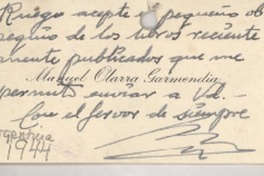 Ruego acepte el pequeño ob
sequio de los libros reciente
mente publicados que me
Manuel Olarra Garmendia
permito enviar a Vd.-
Con el fervor de siempre
Argentina
1944